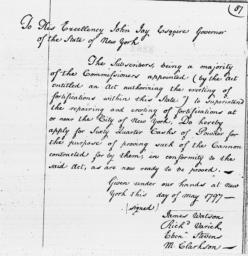 87
To His Excellency John Jay Esquire Governor
of the State of New York
The Subscribers, being a majority
of the Commissioners appointed (by the Act
entitled an Act authorizing the erecting of
fortifications within this State) to Superintend
the repairing and erecting of fortifications at
or near the City of New York, Do hereby
apply for Sixty Quarter Casks of Powder for
the purpose of proving such of the Cannon
contracted for by them, in conformity to the
said Act, as are now ready to be proved. —
Given under our hands at New
York this day of May 1797 —
(signed)
James Watson
Richd Varick
Ebenr Stevens
M Clarkson —